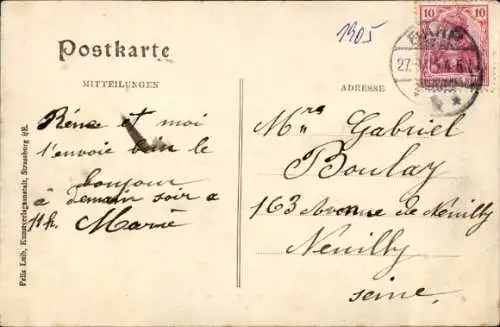 1905
Postkarte
MITTEILUNGEN
ADRESSE
10 10
BARR
27.
Réné et moi
t'envoie bien le
bonjour
à demain soir a
11h. Marie
Mr Gabriel
Boulay
163 Avenue de Neuilly
Neuilly
seine.
Felix Luib, Kunstverlagsanstalt, Strassburg i/E.